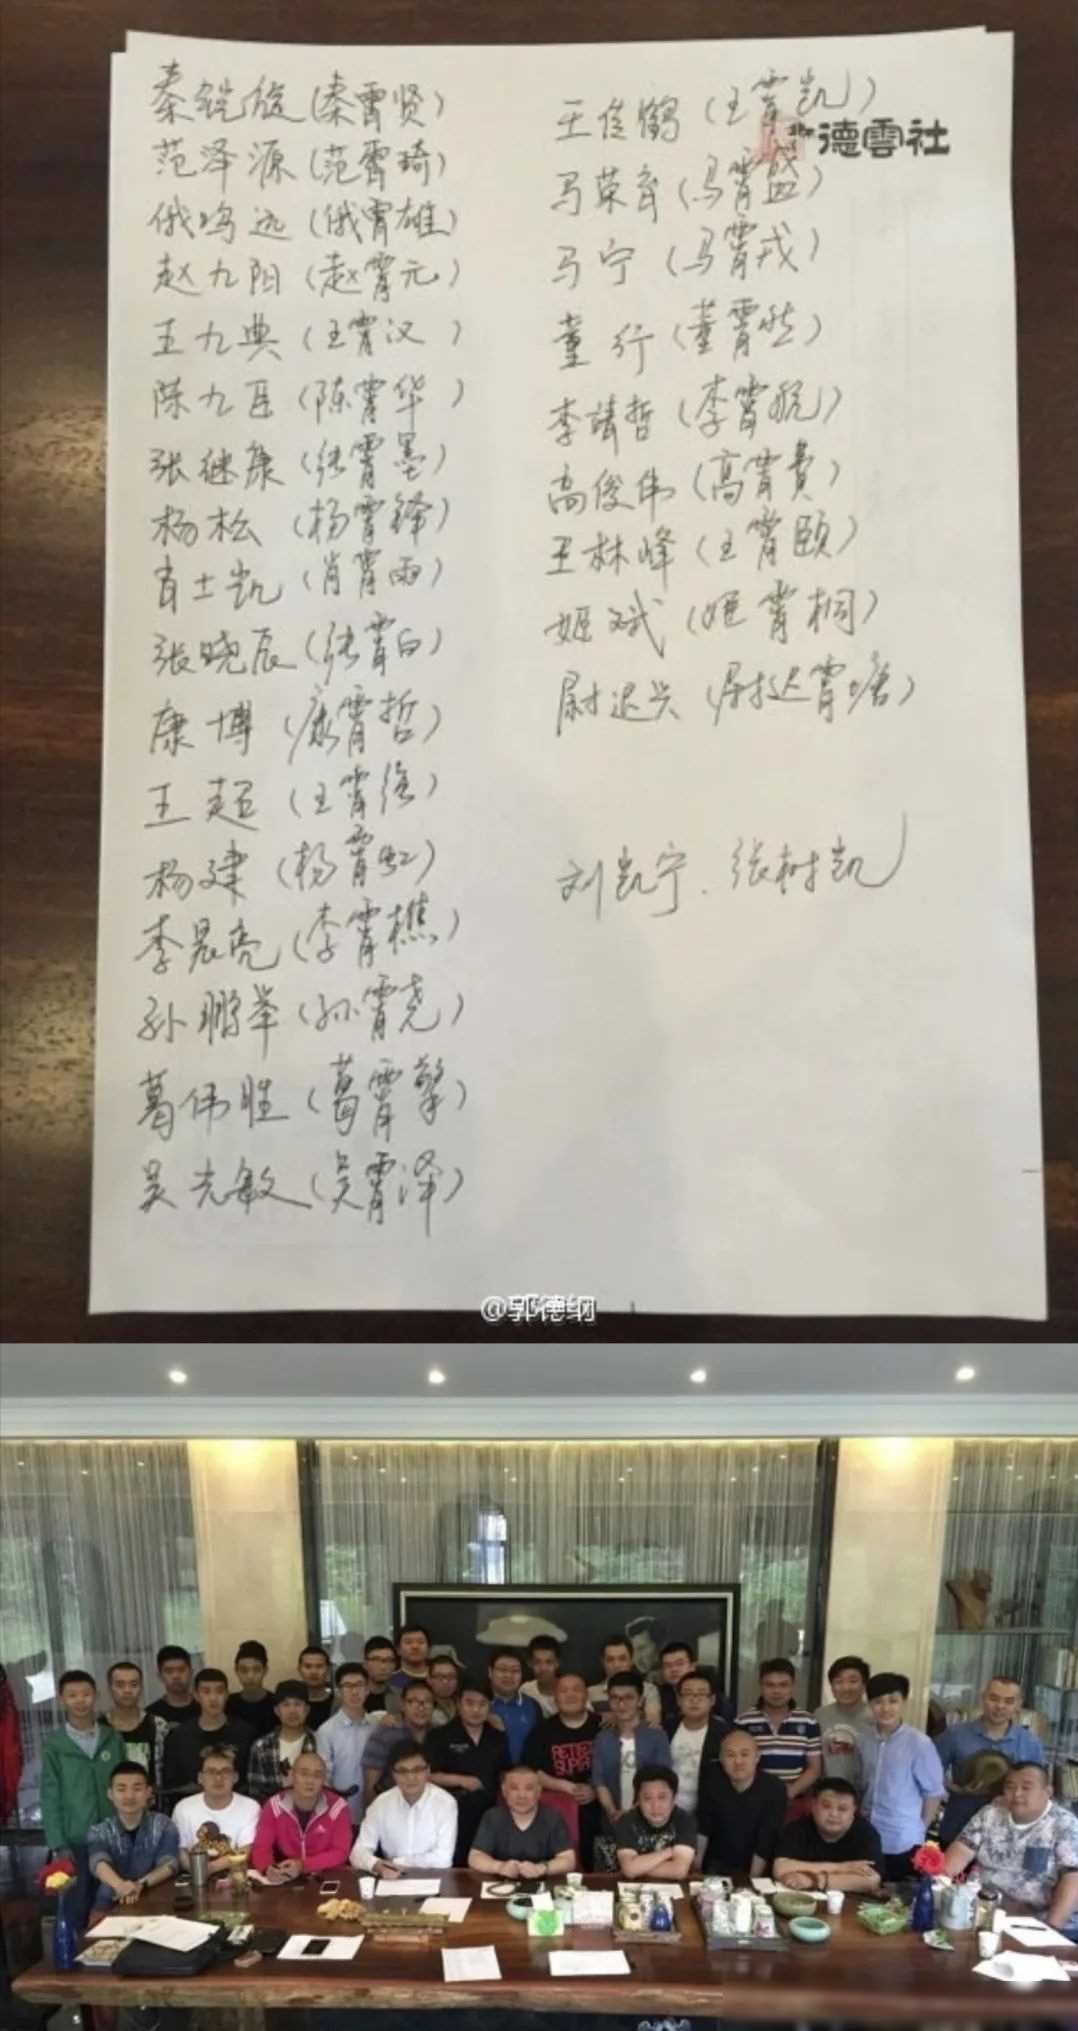 秦凯旋(秦霄贤)
范泽源(范霄琦)
俄鸣远(俄霄雄)
赵九阳(赵霄元)
王九典(王霄汉)
陈九臣(陈霄华)
张继康(张霄墨)
杨松(杨霄锋)
肖士凯(肖霄雨)
张晓辰(张霄白)
康博(康霄哲)
王超(王霄强)
杨建(杨霄虹)
李晨亮(李霄樵)
孙鹏举(孙霄尧)
葛伟胜(葛霄擎)
吴光敏(吴霄泽)
王佳鹤(王霄凯)
德雲社
马荣育(马霄盛)
马宁(马霄戎)
董行(董霄然)
李靖哲(李霄航)
高俊伟(高霄贵)
王林峰(王霄颐)
姬斌(姬霄桐)
尉迟兴(尉迟霄唐)
刘凯宁、张树凯
@郭德纲